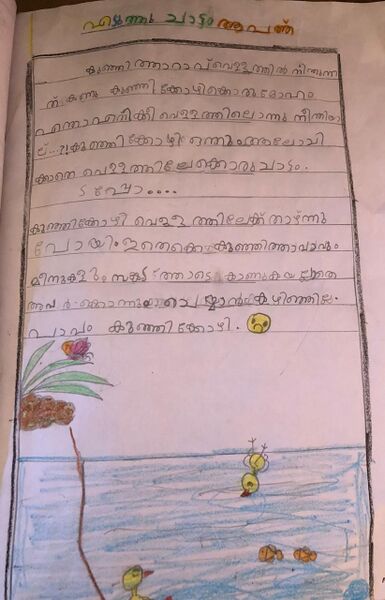 എടുത്തു ചാട്ടം ആപത്ത്
കുഞ്ഞിത്താറാവ് വെള്ളത്തിൽ നീന്തുന്ന
ത് കണ്ടു കുഞ്ഞി ക്കോഴിക്കൊരു മോഹം
എന്താ എനിക്കീ വെള്ളത്തിലൊന്നു നീന്തിയാ
ല്...?! കുഞ്ഞിക്കോഴി ഒന്നും ആലോചി
ക്കാതെ വെള്ളത്തിലേക്കൊരു ചാട്ടം.
ടപ്പോ....
കുഞ്ഞിക്കോഴി വെള്ള ത്തിലേക്ക് താഴ്ന്നു
പോയി. ഇതൊക്കെ കുഞ്ഞിത്താറാവും
മീനുകളും സങ്കട ത്തോടെ കാണുകയല്ലാതെ
അവർക്കൊന്നും ചെയ്യാൻ കഴിഞ്ഞില്ല.
പാവം കുഞ്ഞിക്കോഴി.